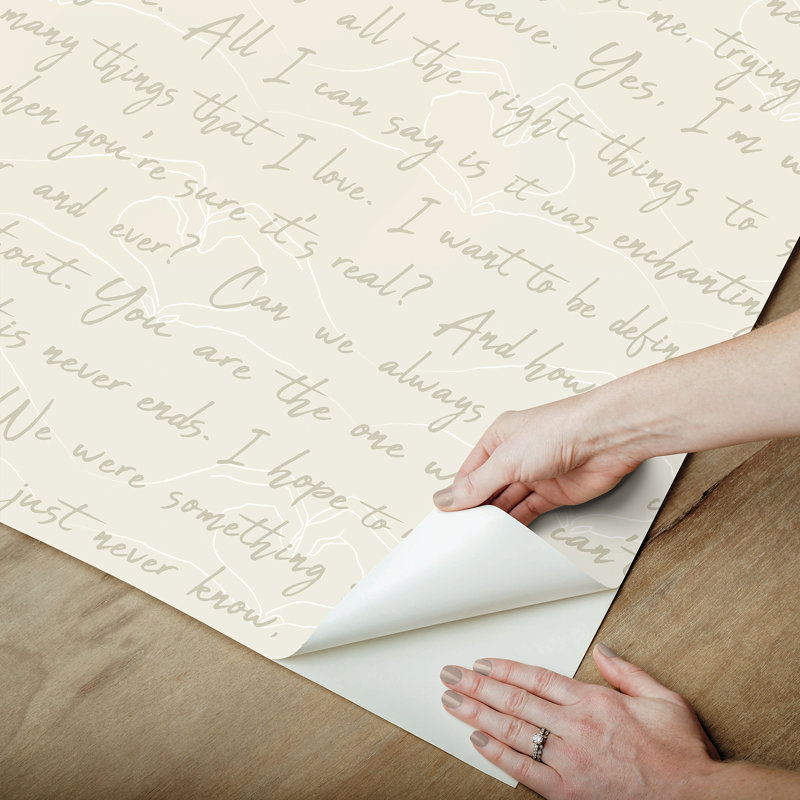 me, trying
sleeve. Yes, I'm
all the right things to
All I can say is it was enchanting
many things that I love. I want to be defin
when you're sure it's real? And how
and ever? Can we always
out. You are the one w can't
is never ends. I hope to
We were something
just never know,